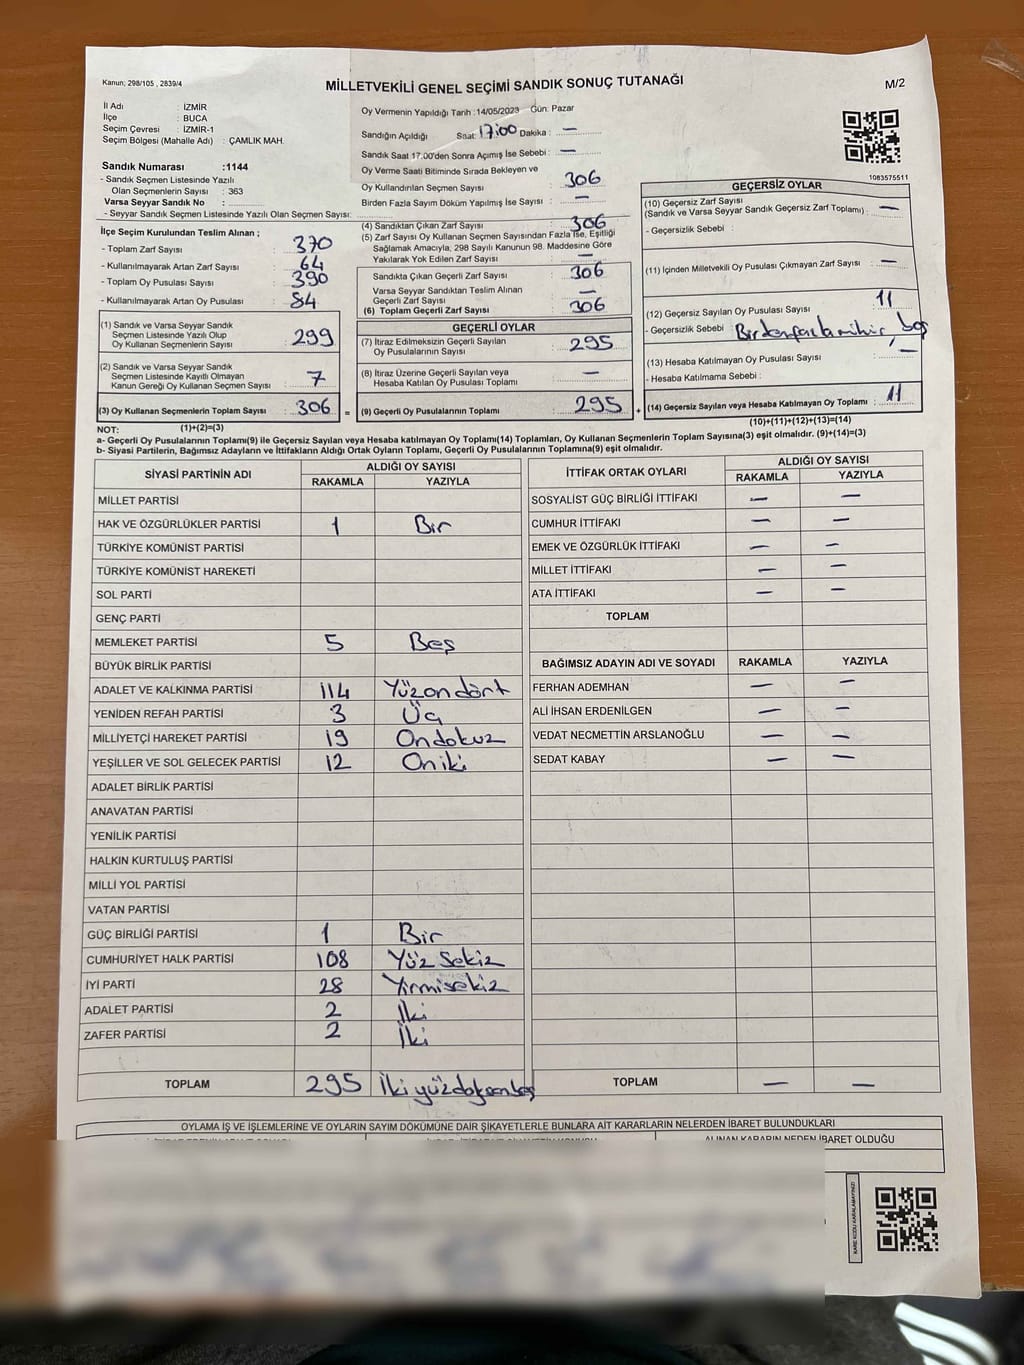 Kanun; 298/105 , 2839/4
MİLLETVEKİLİ GENEL SEÇİMİ SANDIK SONUÇ TUTANAĞI
M/2
İl Adı : İZMİR
İlçe : BUCA
Seçim Çevresi : İZMİR-1
Seçim Bölgesi (Mahalle Adı) : ÇAMLIK MAH.
Sandık Numarası :1144
- Sandık Seçmen Listesinde Yazılı
Olan Seçmenlerin Sayısı : 363
Varsa Seyyar Sandık No :
- Seyyar Sandık Seçmen Listesinde Yazılı Olan Seçmen Sayısı:
Oy Vermenin Yapıldığı Tarih :14/05/2023 Gün: Pazar
Sandığın Açıldığı Saat: 17:00 Dakika : —
Sandık Saat 17.00'den Sonra Açımış İse Sebebi : —
Oy Verme Saati Bitiminde Sırada Bekleyen ve
Oy Kullandırılan Seçmen Sayısı : 306
Birden Fazla Sayım Döküm Yapılmış İse Sayısı : —
1083575511
İlçe Seçim Kurulundan Teslim Alınan ;
- Toplam Zarf Sayısı : 370
- Kullanılmayarak Artan Zarf Sayısı : 64
- Toplam Oy Pusulası Sayısı : 390
- Kullanılmayarak Artan Oy Pusulası : 84
(1) Sandık ve Varsa Seyyar Sandık
Seçmen Listesinde Yazılı Olup
Oy Kullanan Seçmenlerin Sayısı : 299
(2) Sandık ve Varsa Seyyar Sandık
Seçmen Listesinde Kayıtlı Olmayan
Kanun Gereği Oy Kullanan Seçmen Sayısı : 7
(3) Oy Kullanan Seçmenlerin Toplam Sayısı : 306 =
(1)+(2)=(3)
(4) Sandıktan Çıkan Zarf Sayısı : 306
(5) Zarf Sayısı Oy Kullanan Seçmen Sayısından Fazla İse, Eşitliği
Sağlamak Amacıyla, 298 Sayılı Kanunun 98. Maddesine Göre
Yakılarak Yok Edilen Zarf Sayısı : —
Sandıkta Çıkan Geçerli Zarf Sayısı : 306
Varsa Seyyar Sandıktan Teslim Alınan
Geçerli Zarf Sayısı : —
(6) Toplam Geçerli Zarf Sayısı : 306
GEÇERLİ OYLAR
(7) İtiraz Edilmeksizin Geçerli Sayılan
Oy Pusulalarının Sayısı : 295
(8) İtiraz Üzerine Geçerli Sayılan veya
Hesaba Katılan Oy Pusulası Toplamı : —
(9) Geçerli Oy Pusulalarının Toplamı : 295 +
GEÇERSİZ OYLAR
(10) Geçersiz Zarf Sayısı
(Sandık ve Varsa Seyyar Sandık Geçersiz Zarf Toplamı) : —
- Geçersizlik Sebebi :
(11) İçinden Milletvekili Oy Pusulası Çıkmayan Zarf Sayısı : —
(12) Geçersiz Sayılan Oy Pusulası Sayısı : 11
- Geçersizlik Sebebi :
(13) Hesaba Katılmayan Oy Pusulası Sayısı : —
- Hesaba Katılmama Sebebi :
(14) Geçersiz Sayılan veya Hesaba Katılmayan Oy Toplamı : 11
(10)+(11)+(12)+(13)=(14)
NOT:
a- Geçerli Oy Pusulalarının Toplamı(9) ile Geçersiz Sayılan veya Hesaba katılmayan Oy Toplamı(14) Toplamları, Oy Kullanan Seçmenlerin Toplam Sayısına(3) eşit olmalıdır. (9)+(14)=(3)
b- Siyasi Partilerin, Bağımsız Adayların ve İttifakların Aldığı Ortak Oyların Toplamı, Geçerli Oy Pusulalarının Toplamına(9) eşit olmalıdır.
SİYASİ PARTİNİN ADI ALDIĞI OY SAYISI
RAKAMLA YAZIYLA
MİLLET PARTİSİ
HAK VE ÖZGÜRLÜKLER PARTİSİ 1 Bir
TÜRKİYE KOMÜNİST PARTİSİ
TÜRKİYE KOMÜNİST HAREKETİ
SOL PARTİ
GENÇ PARTİ
MEMLEKET PARTİSİ 5 Beş
BÜYÜK BİRLİK PARTİSİ
ADALET VE KALKINMA PARTİSİ 114 Yüzondört
YENİDEN REFAH PARTİSİ 3 Üç
MİLLİYETÇİ HAREKET PARTİSİ 19 Ondokuz
YEŞİLLER VE SOL GELECEK PARTİSİ 12 Oniki
ADALET BİRLİK PARTİSİ
ANAVATAN PARTİSİ
YENİLİK PARTİSİ
HALKIN KURTULUŞ PARTİSİ
MİLLİ YOL PARTİSİ
VATAN PARTİSİ
GÜÇ BİRLİĞİ PARTİSİ 1 Bir
CUMHURİYET HALK PARTİSİ 108 Yüz Sekiz
İYİ PARTİ 28 Yirmisekiz
ADALET PARTİSİ 2 İki
ZAFER PARTİSİ 2 İki
TOPLAM 295 İki yüzdoksanbeş
İTTİFAK ORTAK OYLARI ALDIĞI OY SAYISI
RAKAMLA YAZIYLA
SOSYALİST GÜÇ BİRLİĞİ İTTİFAKI — —
CUMHUR İTTİFAKI — —
EMEK VE ÖZGÜRLÜK İTTİFAKI — —
MİLLET İTTİFAKI — —
ATA İTTİFAKI — —
TOPLAM
BAĞIMSIZ ADAYIN ADI VE SOYADI RAKAMLA YAZIYLA
FERHAN ADEMHAN — —
ALİ İHSAN ERDENİLGEN — —
VEDAT NECMETTİN ARSLANOĞLU — —
SEDAT KABAY — —
TOPLAM — —
OYLAMA İŞ VE İŞLEMLERİNE VE OYLARIN SAYIM DÖKÜMÜNE DAİR ŞİKAYETLERLE BUNLARA AİT KARARLARIN NELERDEN İBARET BULUNDUKLARI
ALINAN KARARIN NEDEN İBARET OLDUĞU
KARE KODU KARALAMAYINIZ!